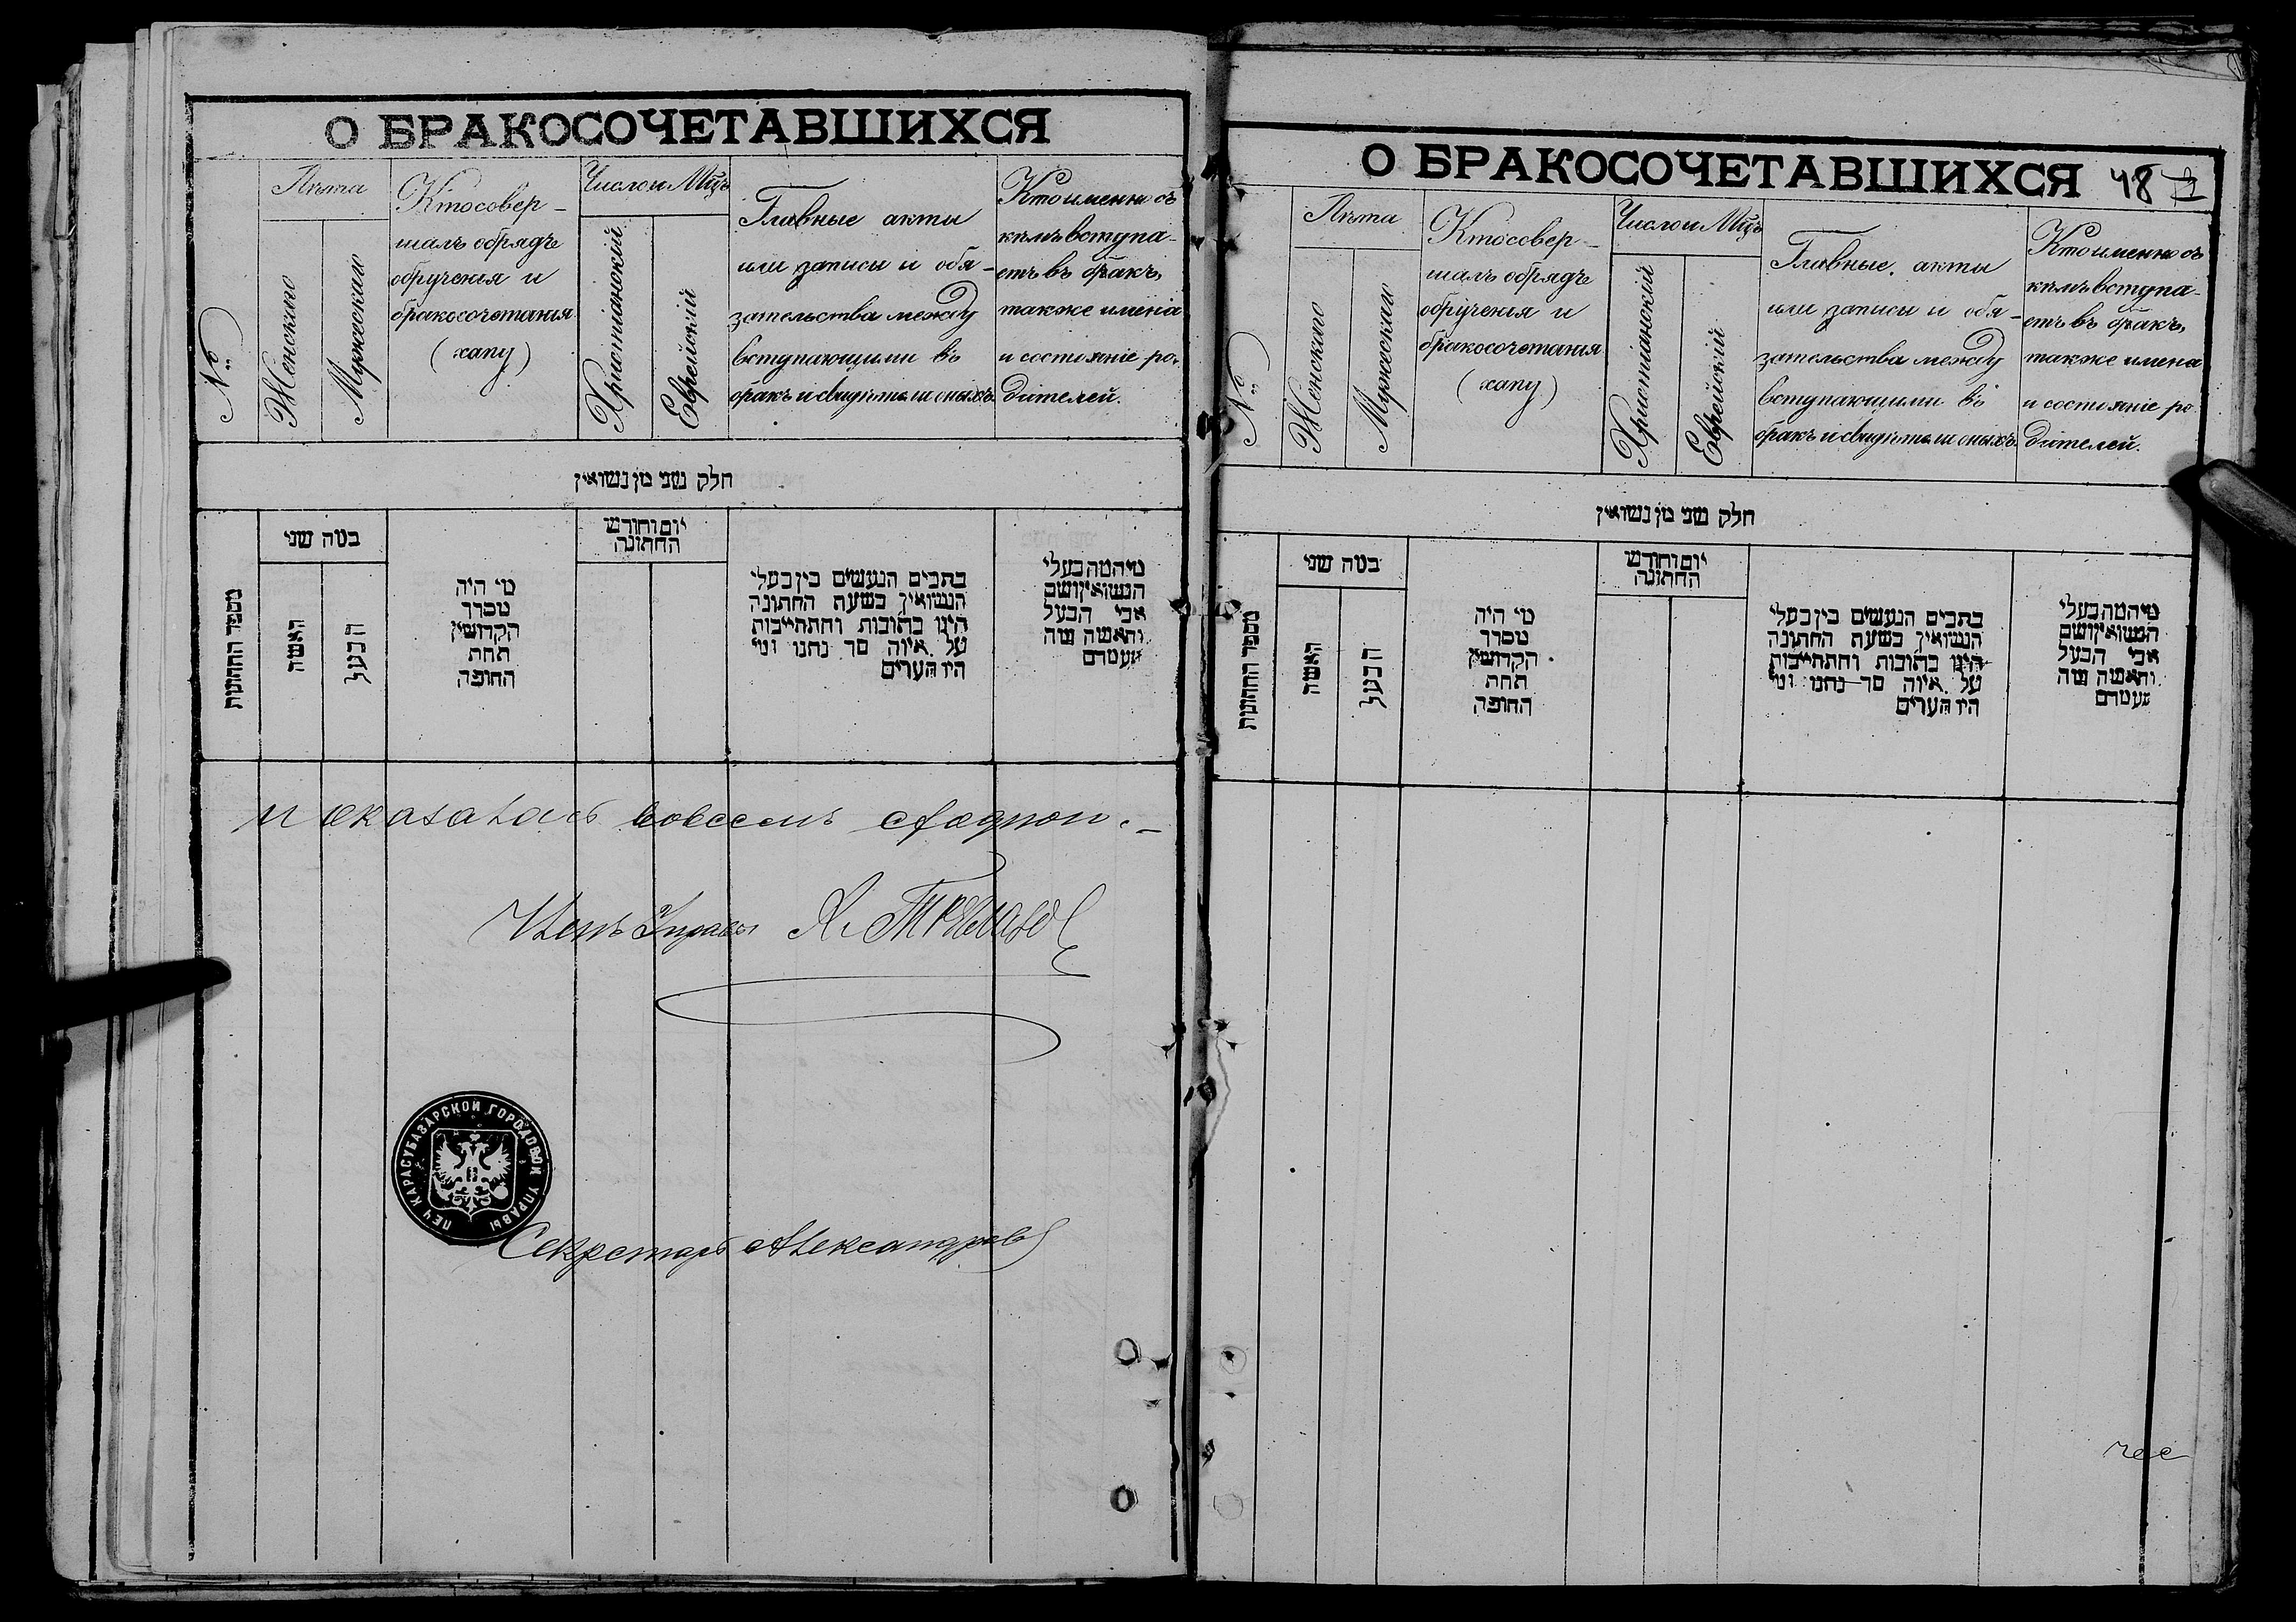 О БРАКОСОЧЕТАВШИХСЯ
№
Лѣта
Женскаго
Мужескаго
Кто совер-
шалъ обрядъ
обрученія и
бракосочетанія
(хапу)
Число и Мцъ
Христіанскій
Еврейскій
Главные акты
или записи и обя-
зательства между
вступающими въ
бракъ и свидѣтели оныхъ.
Кто именно съ
кѣмъ вступа-
етъ въ бракъ,
также имена
и состояніе ро-
дителей.
חלק שני מן נשואין
מספר החתונות
במה שני
האשה
הבעל
מי היה
מסדר
הקדושין
תחת
החופה
יום וחודש
החתונה
כתבים הנעשים בין בעלי
הנשואין בשעת החתונה
היינו כתובות והתחייבות
על איזה סך נתנו ומי
היו העדים
מי המה בעלי
הנשואין ושם
אבי הבעל
והאשה ומה
מעמדם
и оказалась во всемъ сходною.-
Членъ Управы
ПЕЧ КАРАСУБАЗАРСКОЙ ГОРОДОВОЙ УПРАВЫ
Секретарь Александровъ
О БРАКОСОЧЕТАВШИХСЯ 48
№
Лѣта
Женскаго
Мужескаго
Кто совер-
шалъ обрядъ
обрученія и
бракосочетанія
(хапу)
Число и Мцъ
Христіанскій
Еврейскій
Главные акты
или записи и обя-
зательства между
вступающими въ
бракъ и свидѣтели оныхъ.
Кто именно съ
кѣмъ вступа-
етъ въ бракъ,
также имена
и состояніе ро-
дителей.
חלק שני מן נשואין
מספר החתונות
במה שני
האשה
הבעל
מי היה
מסדר
הקדושין
תחת
החופה
יום וחודש
החתונה
כתבים הנעשים בין בעלי
הנשואין בשעת החתונה
היינו כתובות והתחייבות
על איזה סך נתנו ומי
היו העדים
מי המה בעלי
הנשואין ושם
אבי הבעל
והאשה ומה
מעמדם